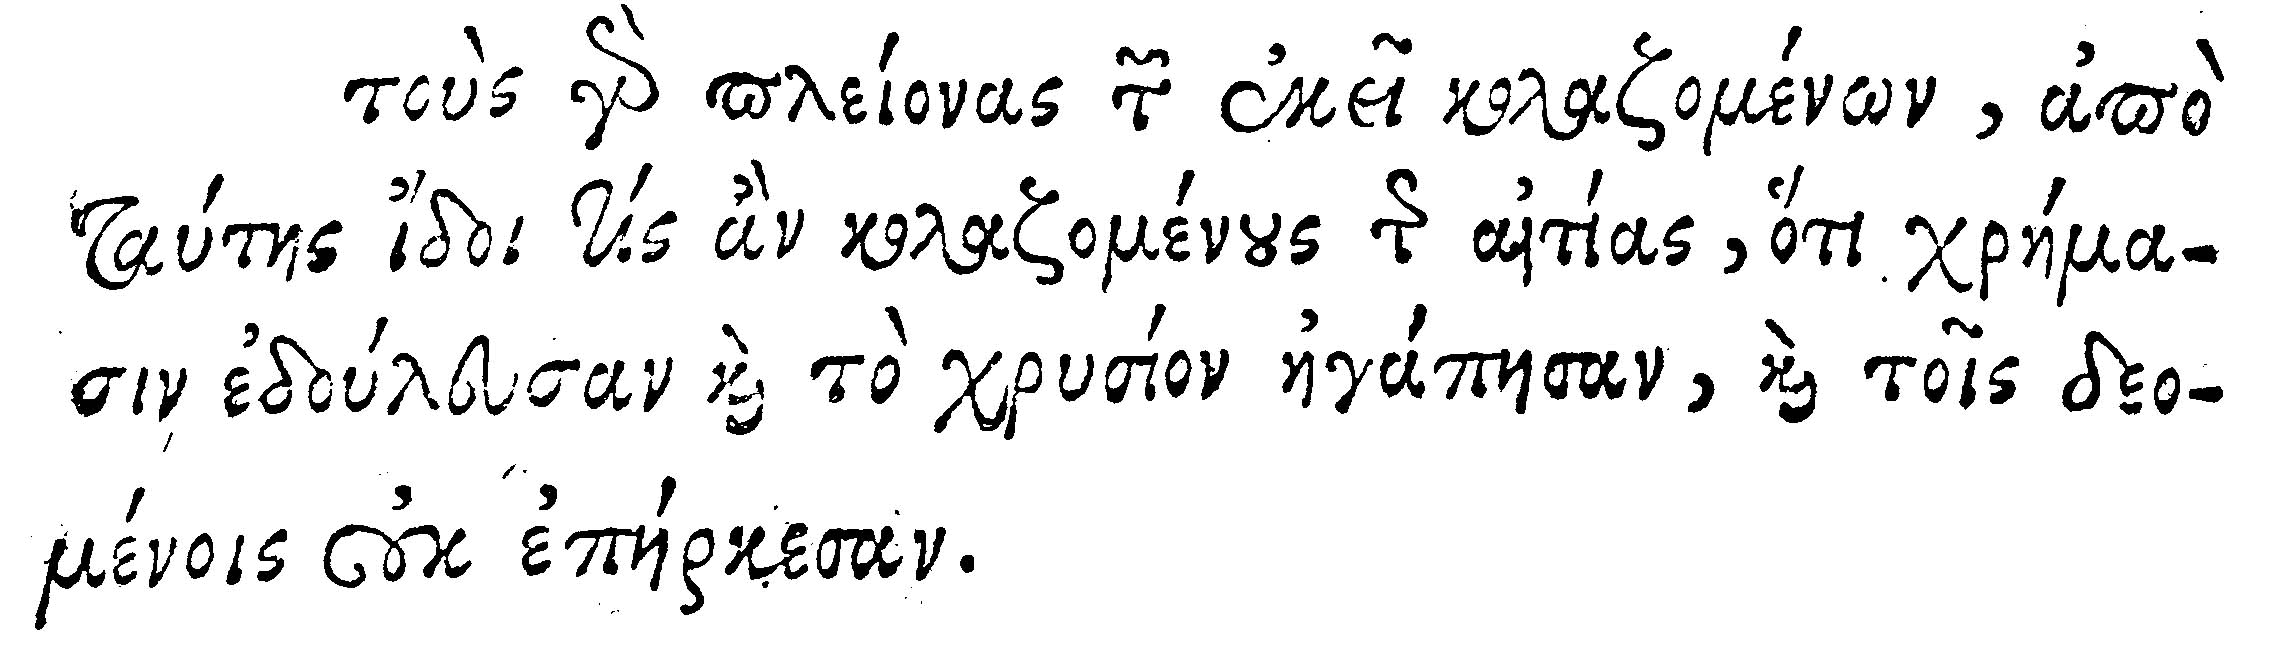 τοὺς γὸ πλείονας τῶν ἐκεῖ κολαζομένων, ἀπὸ
ταύτης ἴδοι τίς ἂν κολαζομένους τῆς αἰτίας, ὅτι χρήμα-
σιν ἐδούλευσαν καὶ τὸ χρυσίον ἠγάπησαν, καὶ τοῖς δεο-
μένοις οὐκ ἐπήρκεσαν.